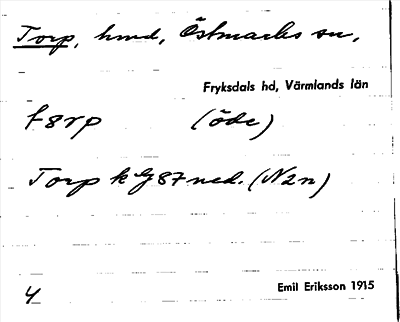 Torp, hmd, Östmarks sn,
Fryksdals hd, Värmlands län
(öde)
Torp 87 ned. (N2n)
4
Emil Eriksson 1915